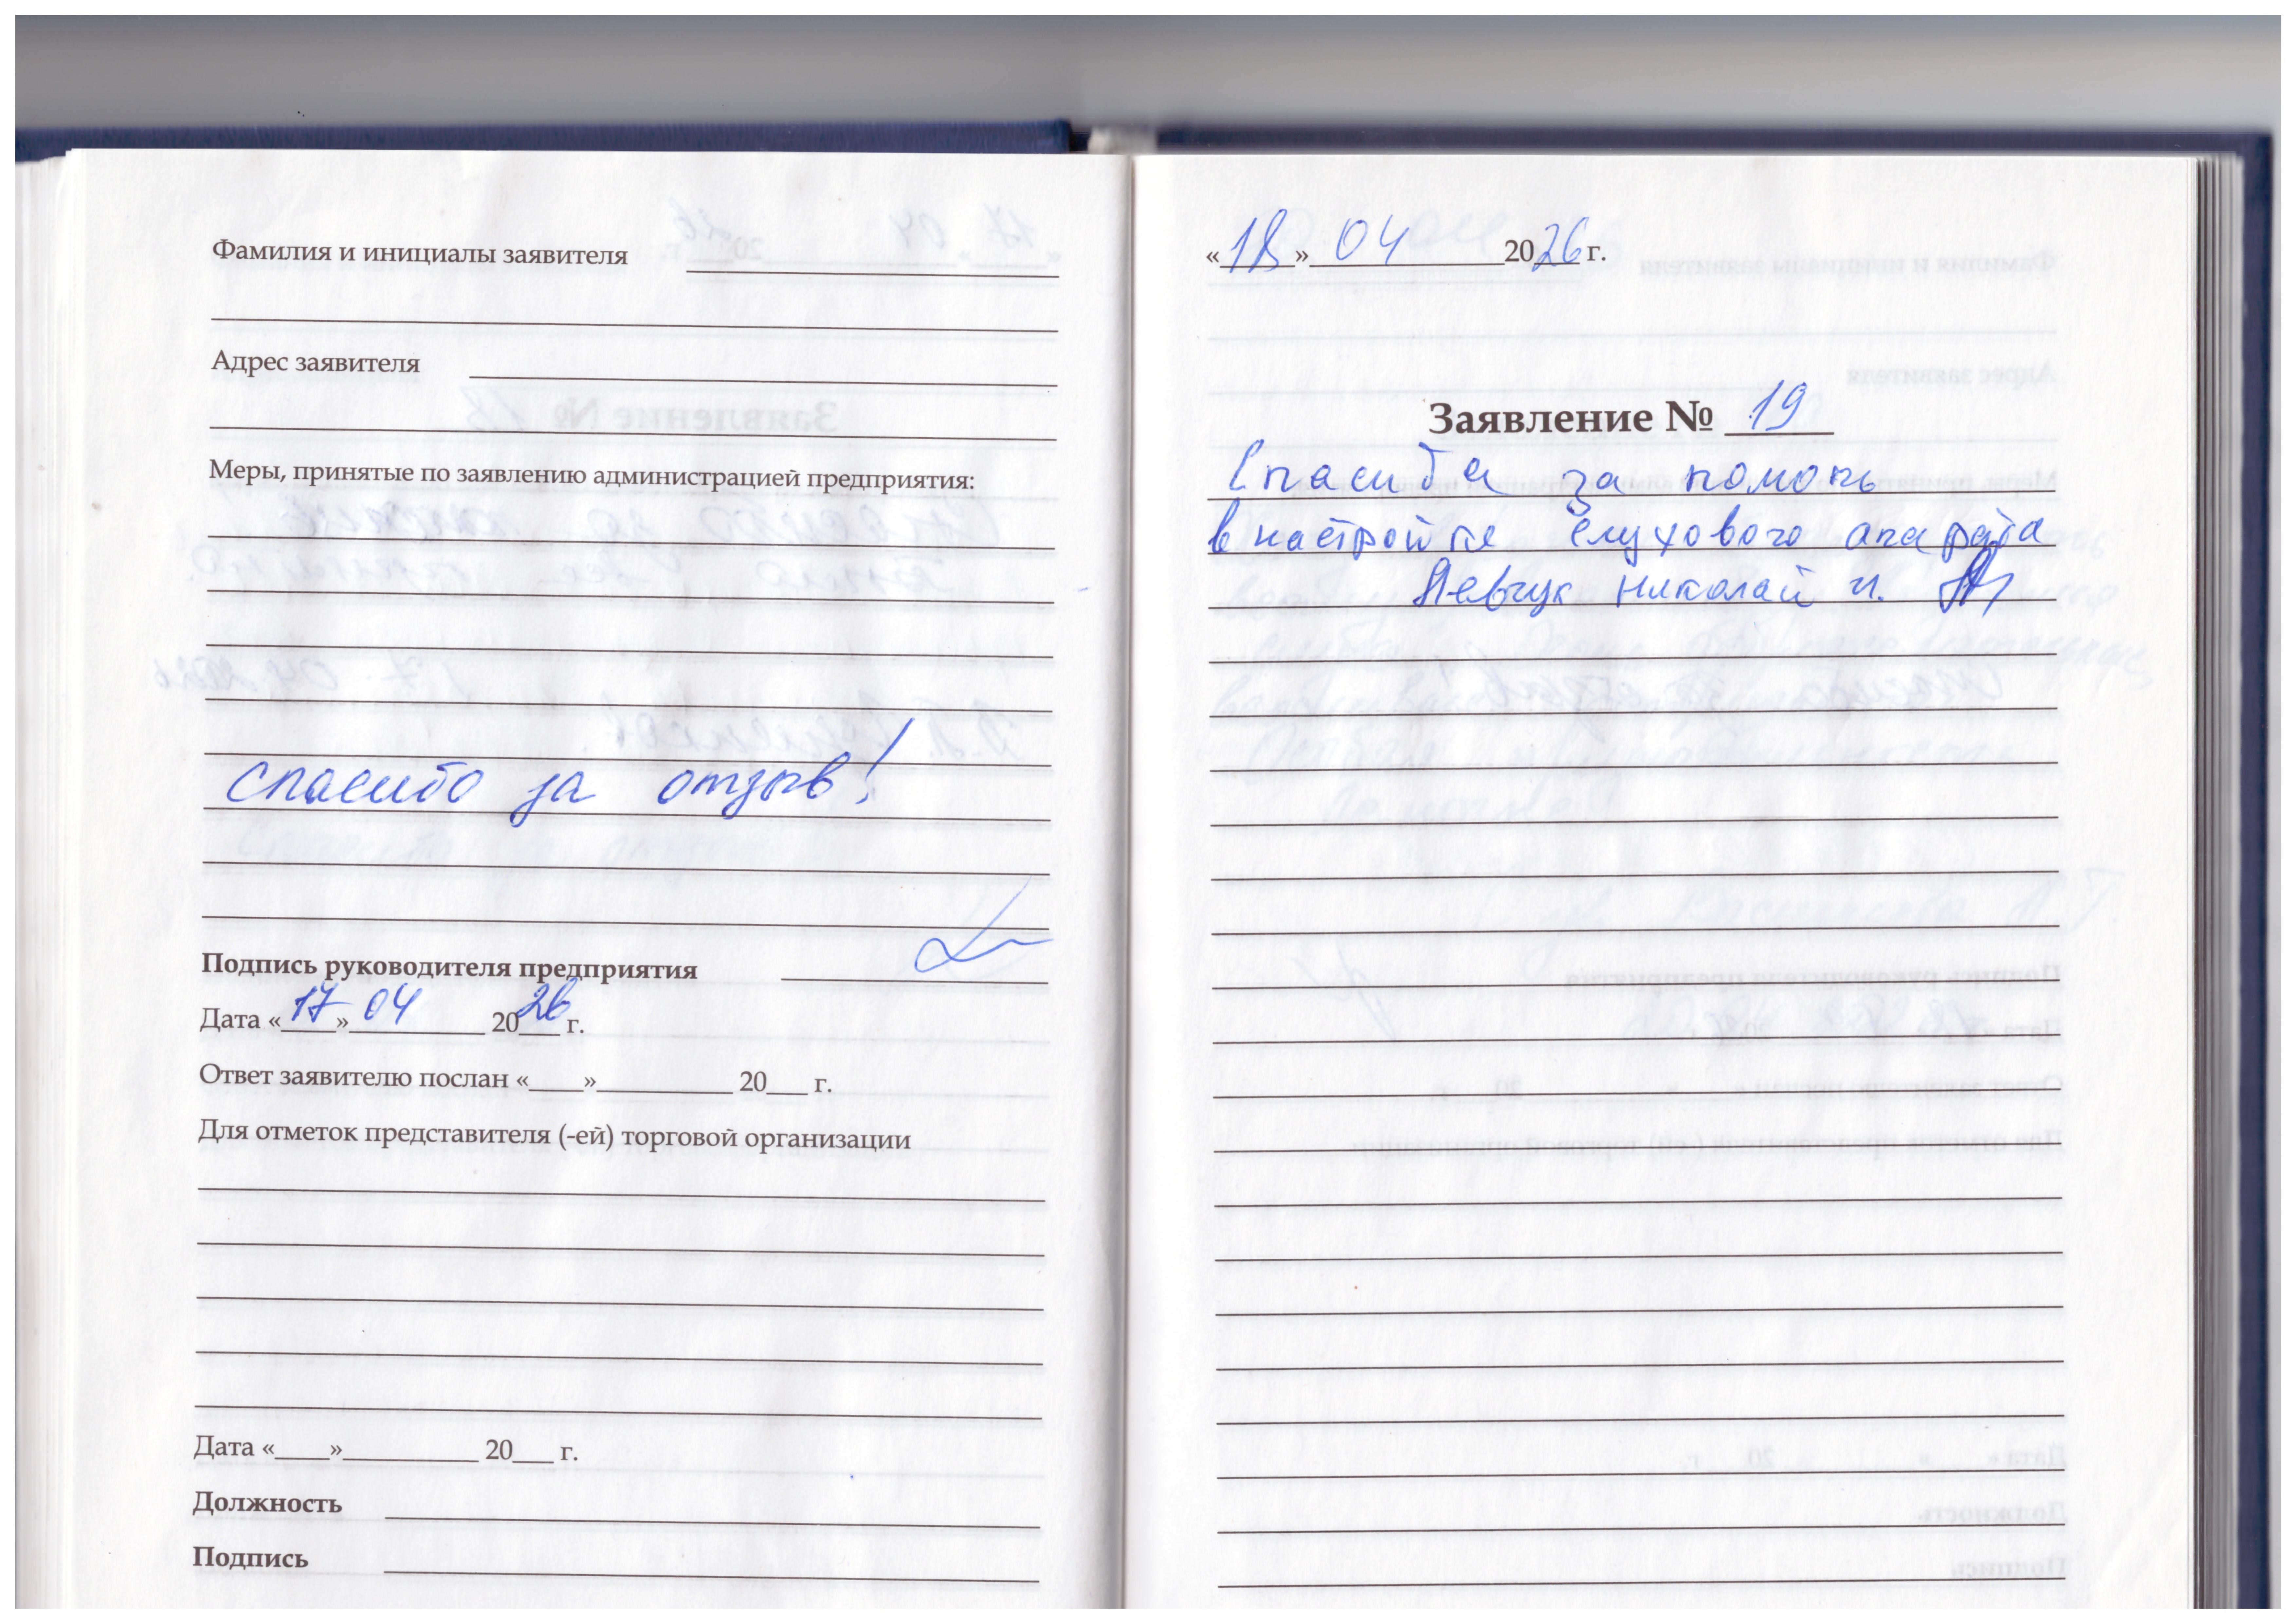 Фамилия и инициалы заявителя
Адрес заявителя
Меры, принятые по заявлению администрацией предприятия:
Спасибо за отзыв!
Подпись руководителя предприятия
Дата «17» 04 2026 г.
Ответ заявителю послан «____»__________ 20___ г.
Для отметок представителя (-ей) торговой организации
Дата «____»__________ 20___ г.
Должность
Подпись
«18» 04 2026 г.
Заявление № 19
Спасиба за помоть
в настройке слухового апарата
Левчук Николай И.